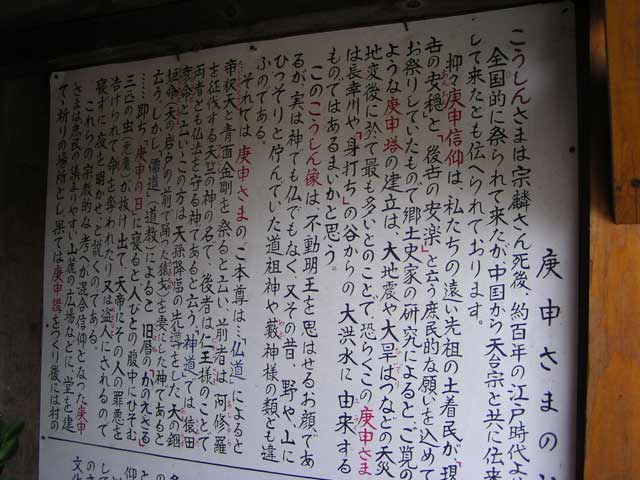 庚申さまの
こうしんさまは宗麟さん死後、約百年の江戸時代よ
全国的に祭られて来たが中国から天台宗と共に伝来
して来たとも伝へられております。
抑々庚申信仰は、私たちの遠い先祖の土着民が、「現
世の安穏」と「後世の安楽」と云う庶民的な願いを込めて
お祭りしていたもので郷土史家の研究によると、ご覧の
ような庚申塔の建立は、大地震や大旱ばつなどの天災
地変後に於て最も多いとのことで、恐らくこの庚申さま
は長幸川や「身打ち」の谷からの大洪水に由来する
ものではあるまいかと思う。
このこうしん像は、不動明王を思はせるお顔であ
るが、実は神でも仏でもなく、又その昔、野や、山に
ひっそりと佇んでいた道祖神や藪神様の類とも違
ふのである。
それでは庚申さまのご本尊は…「仏道」によると
帝釈天と青面金剛を祭ると云い、前者は阿修羅
を征伐する天竺の神の名で、後者は仁王様のことで
両者とも仏法を守る神であると云う。「神道」では猿田
彦命と云い、この方は天孫降臨の先導をした天の鈿
女命(天の岩戸の前で踊った猿女)を妻にした神であると
云う。しかし、「儒道」(道教)によると旧暦の「かのえさる」
……即ち「庚申の日」に寝ると人びとの腹中にひそむ
三匹の虫(悪魔)が抜け出て、天帝にその人の罪悪を
告げられて命を奪われたり又は盗人にされるので
寝ずに夜を明かせと説くのである。
これらの宗教的な考えが混合信仰となった庚申
さまは庶民の集まりやす、山麓の広場などに、堂を建
て、祈りの場所とし、果ては庚申講をつくり後には村の